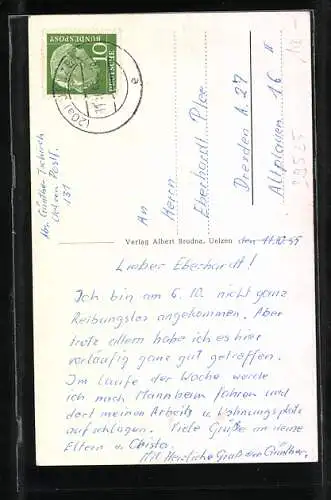 10
DEUTSCHE
BUNDESPOST
(20a)
a
Abs. Günther Tschirch
Uelzen Postf.
131
An
Herrn
Eberhardt
Dresden A. 27
Altplauen 16 II
Verlag Albert Brudne, Uelzen
den 11.10.55
Lieber Eberhardt!
Ich bin am 6.10. nicht ganz
Reibungslos angekommen. Aber
trotz allem habe ich es hier
vorläufig ganz gut getroffen.
Im Laufe der Woche werde
ich nach Mannheim fahren und
dort meinen Arbeits u. Wohnungsplatz
aufschlagen. Viele Grüße an deine
Eltern u. Christa.
Mit Herzliche Gruß dein Günther.